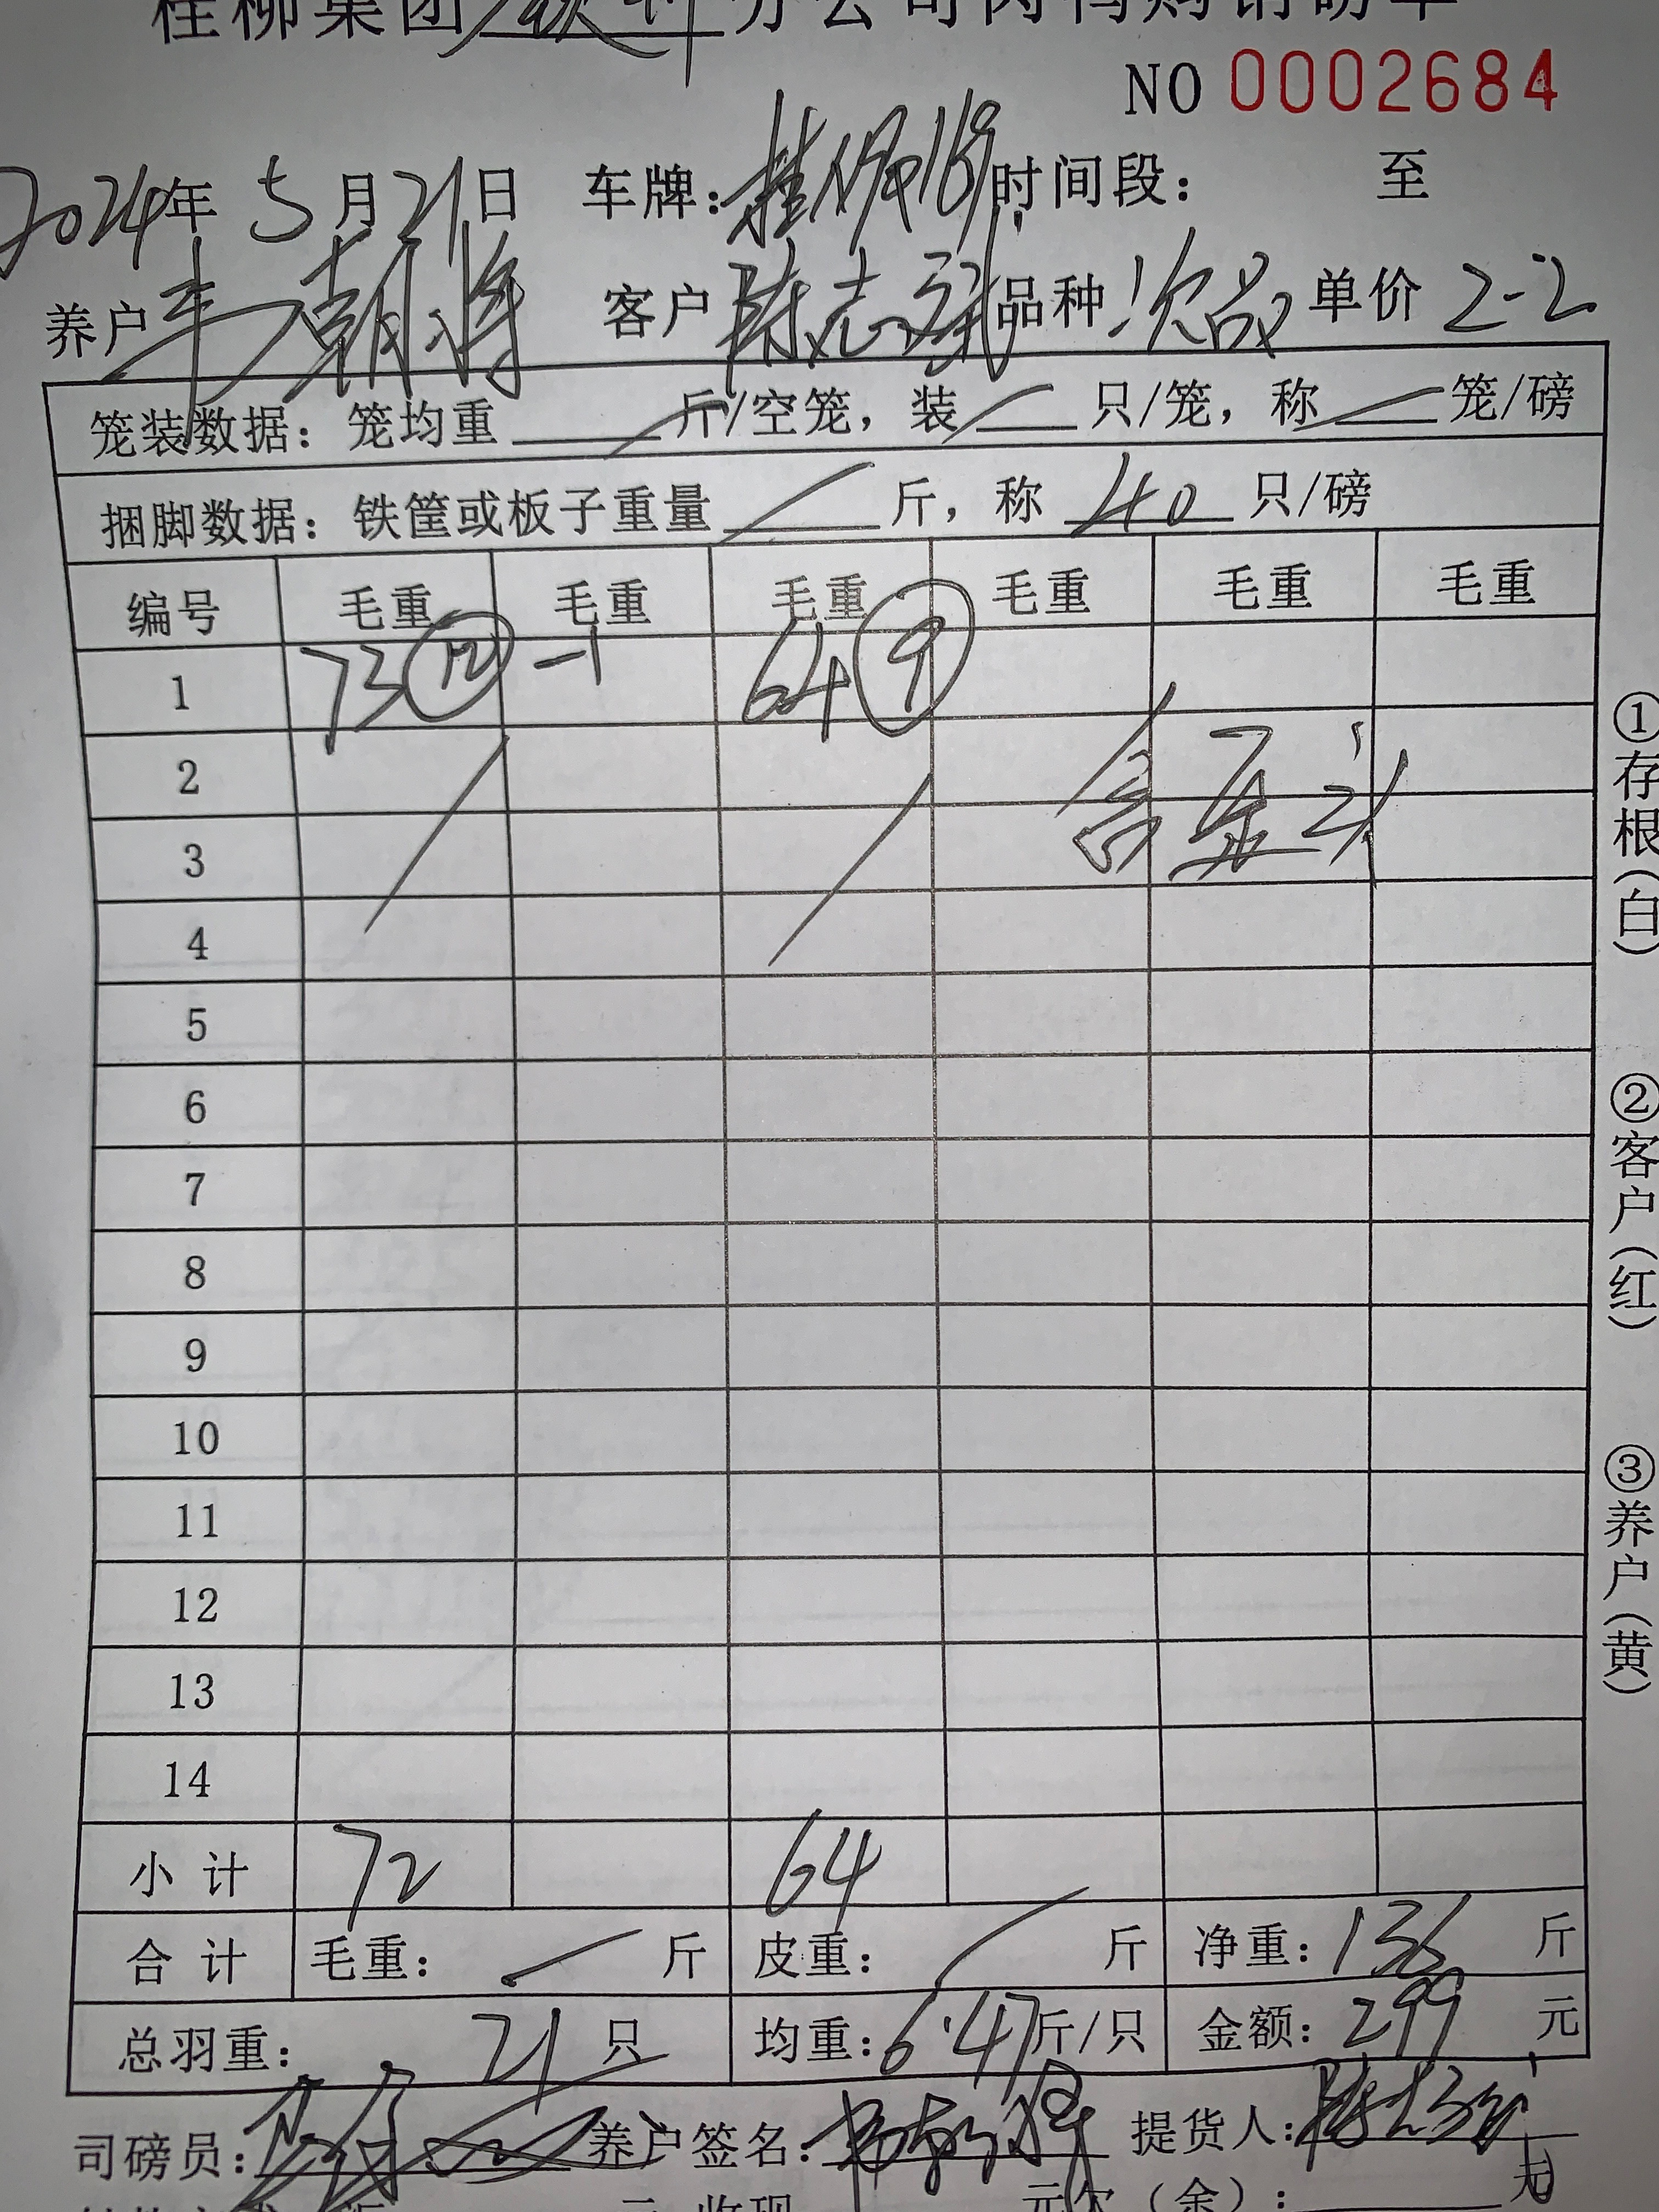 桂柳集团 分公司肉鸭购销磅单
NO 0002684
2024年 5月21日 车牌: 时间段: 至
养户 韦朝将 客户 陈志强 品种 次品 单价 2-2
笼装数据: 笼均重 斤/空笼, 装 只/笼, 称 笼/磅
捆脚数据: 铁筐或板子重量 斤, 称 40 只/磅
编号 毛重 毛重 毛重 毛重 毛重 毛重
1 73 ⑫ -1 64 ⑨
2
3
4
5
6
7
8
9
10
11
12
13
14
小计 72 64
合计 毛重: 斤 皮重: 斤 净重: 136 斤
总羽重: 21 只 均重: 6.47 斤/只 金额: 299 元
司磅员: 养户签名: 提货人:
元 收现 元 欠(余): 元
①存根(白) ②客户(红) ③养户(黄)